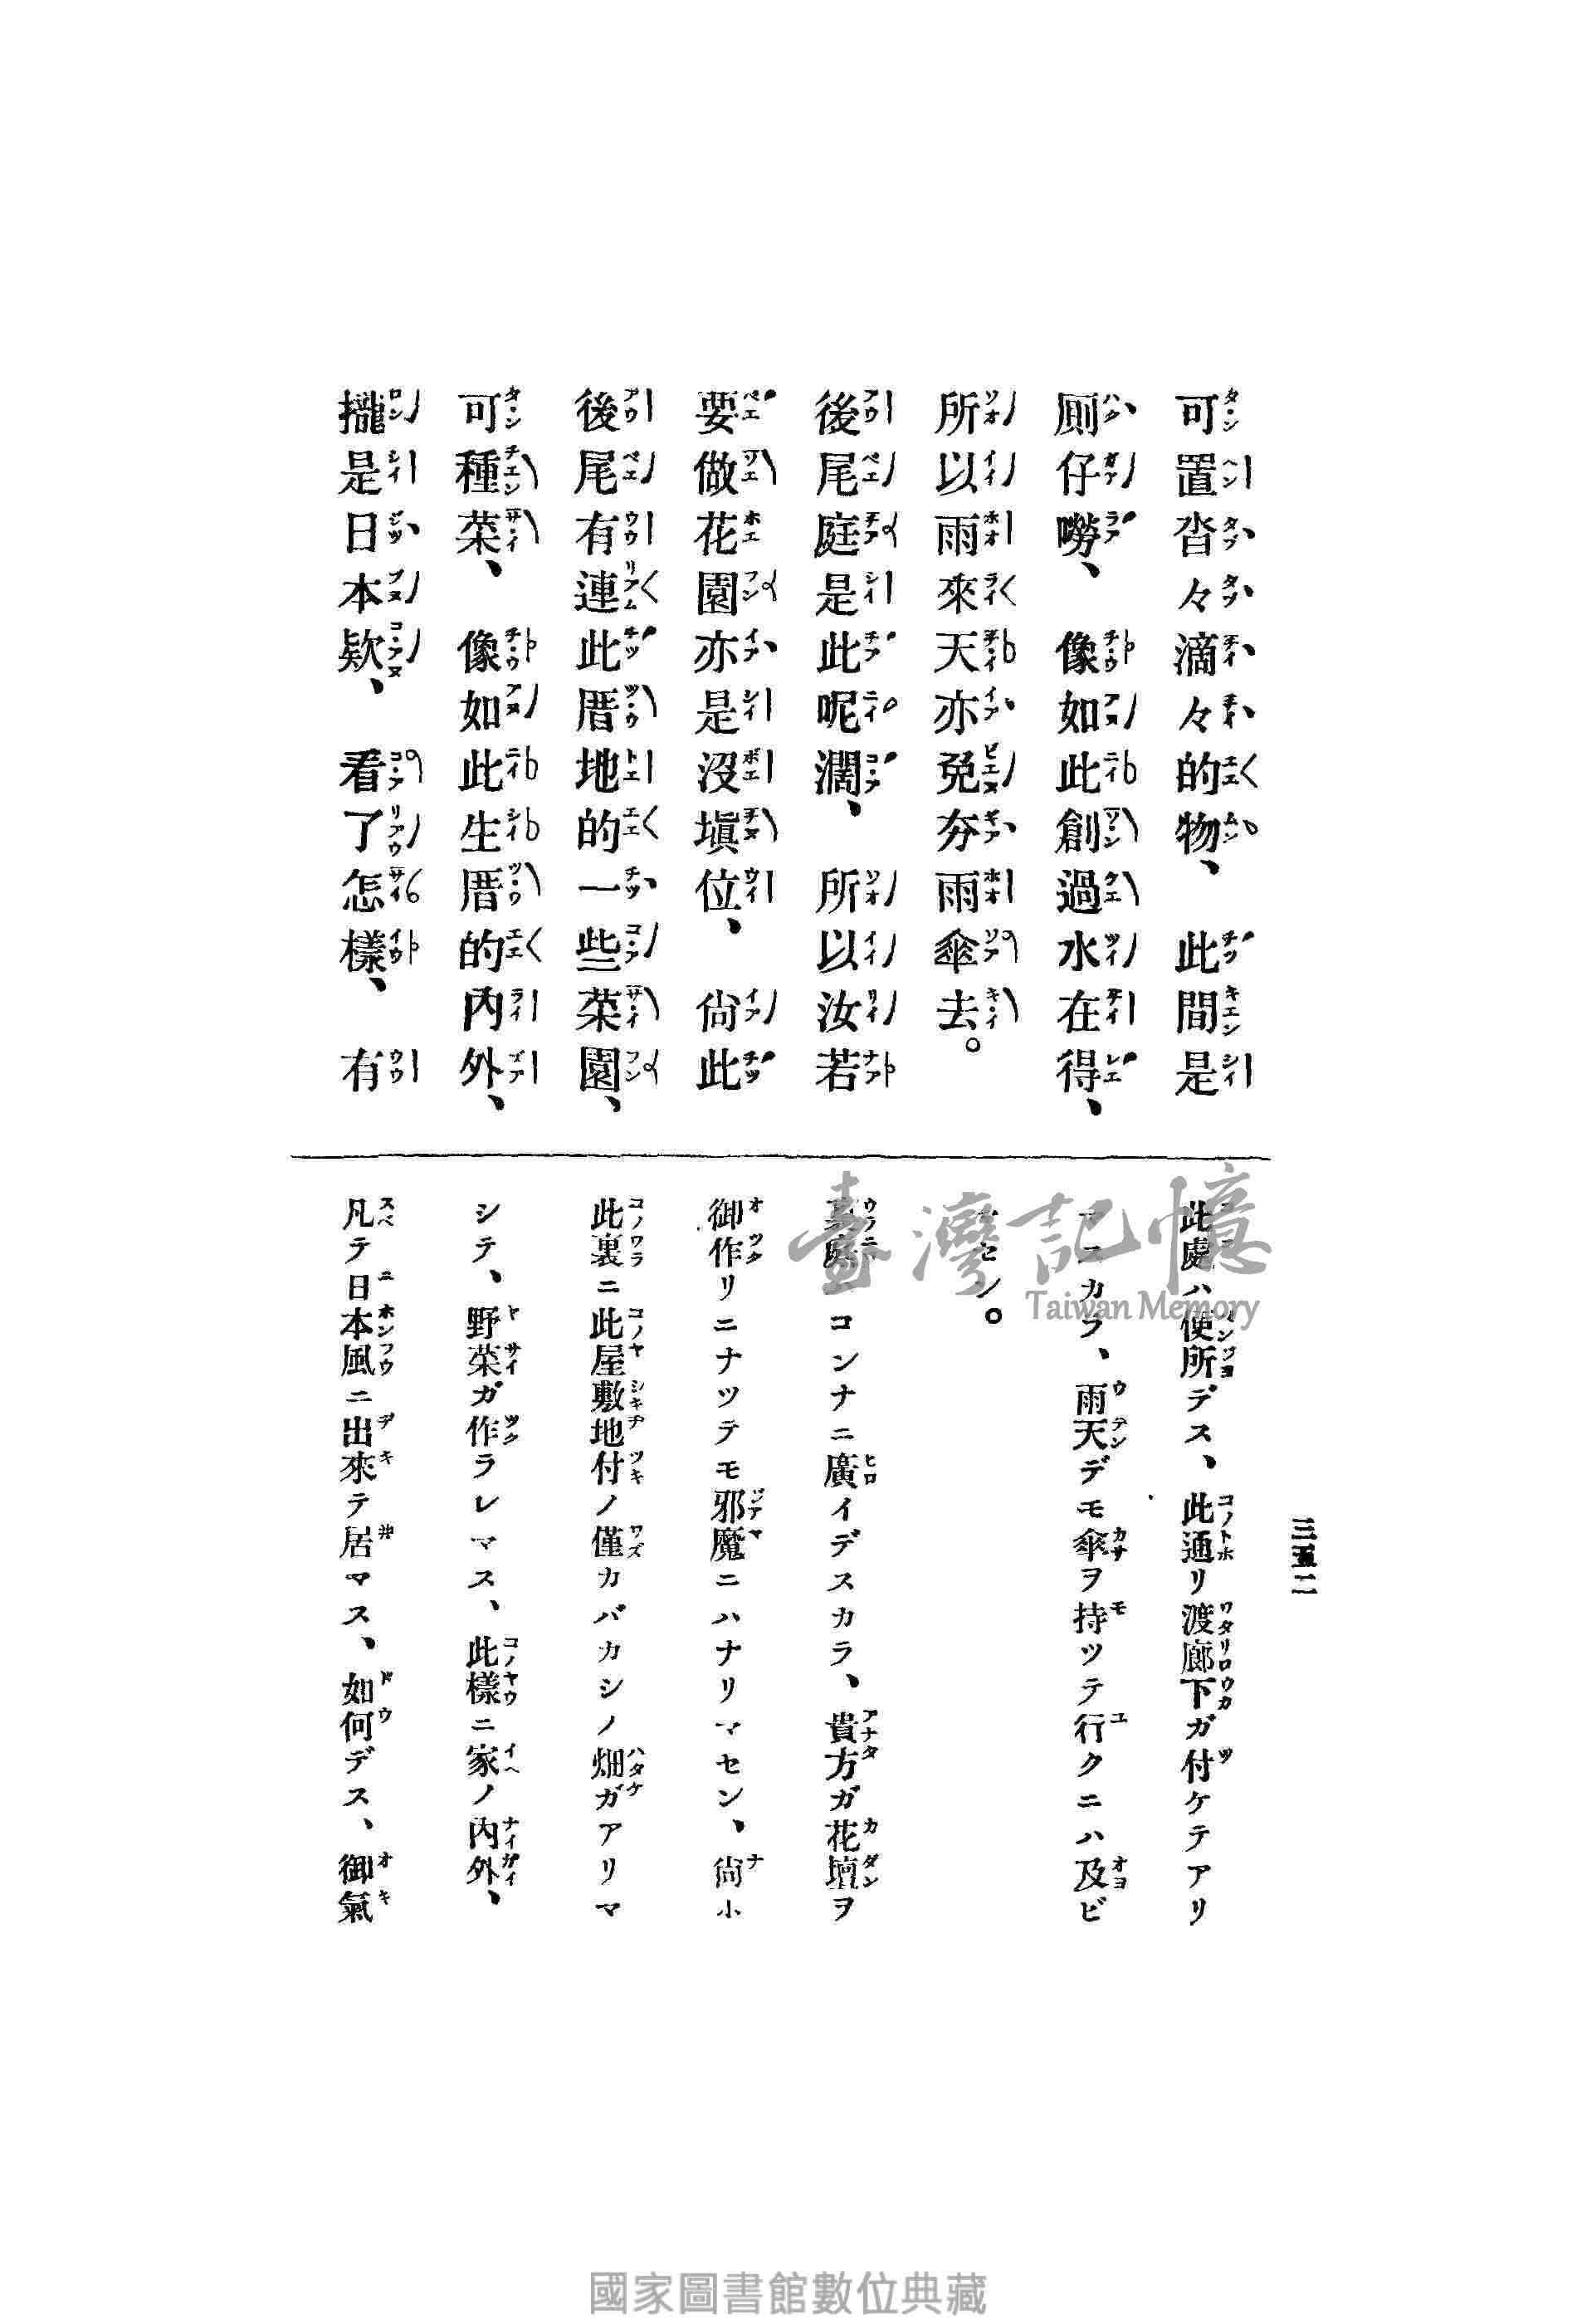 可置沓々滴々的物、此間是
厠仔嘮、像如此創過水在得、
所以雨來天亦免夯雨傘去。
後尾庭是此呢濶、所以汝若
要做花園亦是沒塡位、尙此
後尾有連此厝地的一些菜園、
可種菜、像如此生厝的內外、
攏是日本欵、看了怎樣、有
三五二
此處ハ便所デス、此通リ渡廊下ガ付ケテアリ
マスカラ、雨天デモ傘ヲ持ツテ行クニハ及ビ
マセン。
裏庭ハコンナニ廣イデスカラ、貴方ガ花壇ヲ
御作リニナツテモ邪魔ニハナリマセン、尙ホ
此裏ニ此屋敷地付ノ僅カバカシノ畑ガアリマ
シテ、野菜ガ作ラレマス、此樣ニ家ノ內外、
凡テ日本風ニ出來テ居マス、如何デス、御氣
臺灣記憶
Taiwan Memory
國家圖書館數位典藏